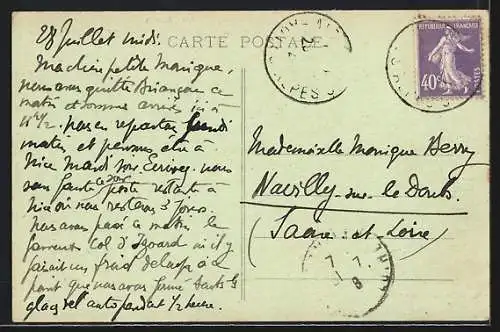 28 Juillet midi.
CARTE POSTALE
Ma chère petite Monique,
nous avons quitté Briançon ce
matin et sommes arrivés ici à
11h 1/2. pas en repartons
matin et pensons être à
Nice mardi soir Ecrivez nous
sans faute ce soir poste restante à
Nice où nous resterons 3 jours.
Nous avons passé ce matin le
fameux col d'Izoard où il y
faisait un froid de loup à
point que nous avons
glag
auto pendant 1/2 heure.
REPUBLIQUE FRANÇAISE
POSTES
40c
Mademoiselle Monique Berry
Navilly-sur-le Doubs
(Saône et Loire)